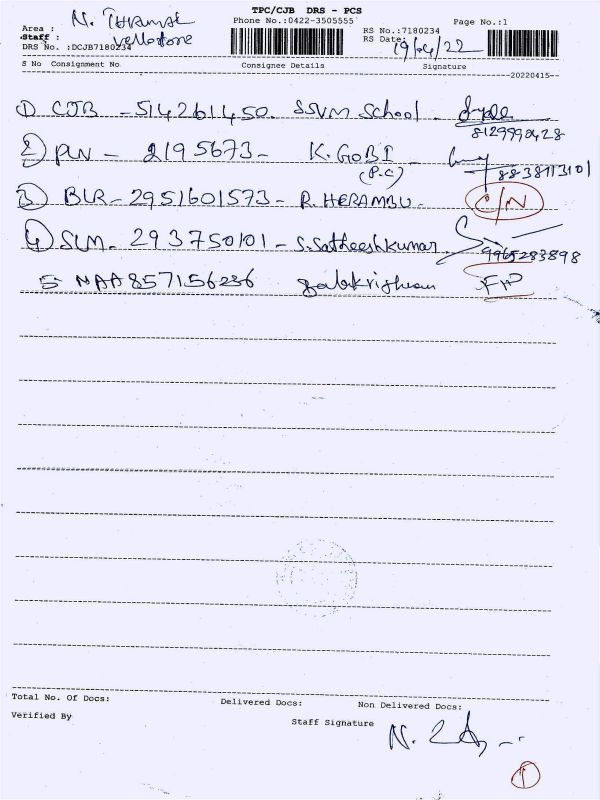 TPC/CJB DRS - PCS
Phone No.:0422-3505555
Page No.:1
Area : N. THRAMAL
Staff : Vellalore
DRS No. :DCJB7180234
RS No.:7180234
RS Date: 19/04/22
S No Consignment No Consignee Details Signature
20220415
1) CJB - 514261450. SSVM School.
8129990428
2) PLN - 2195673 - K. GOBI
(P.C) 8838113101
3) BLR - 2951601573 - R. HERAMBU - O/N
4) SLM - 293750101 - S. Satheeshkumar
9965283898
5 - MAA 857156236 Balakrishnan
Total No. Of Docs: Delivered Docs: Non Delivered Docs:
Verified By Staff Signature
1